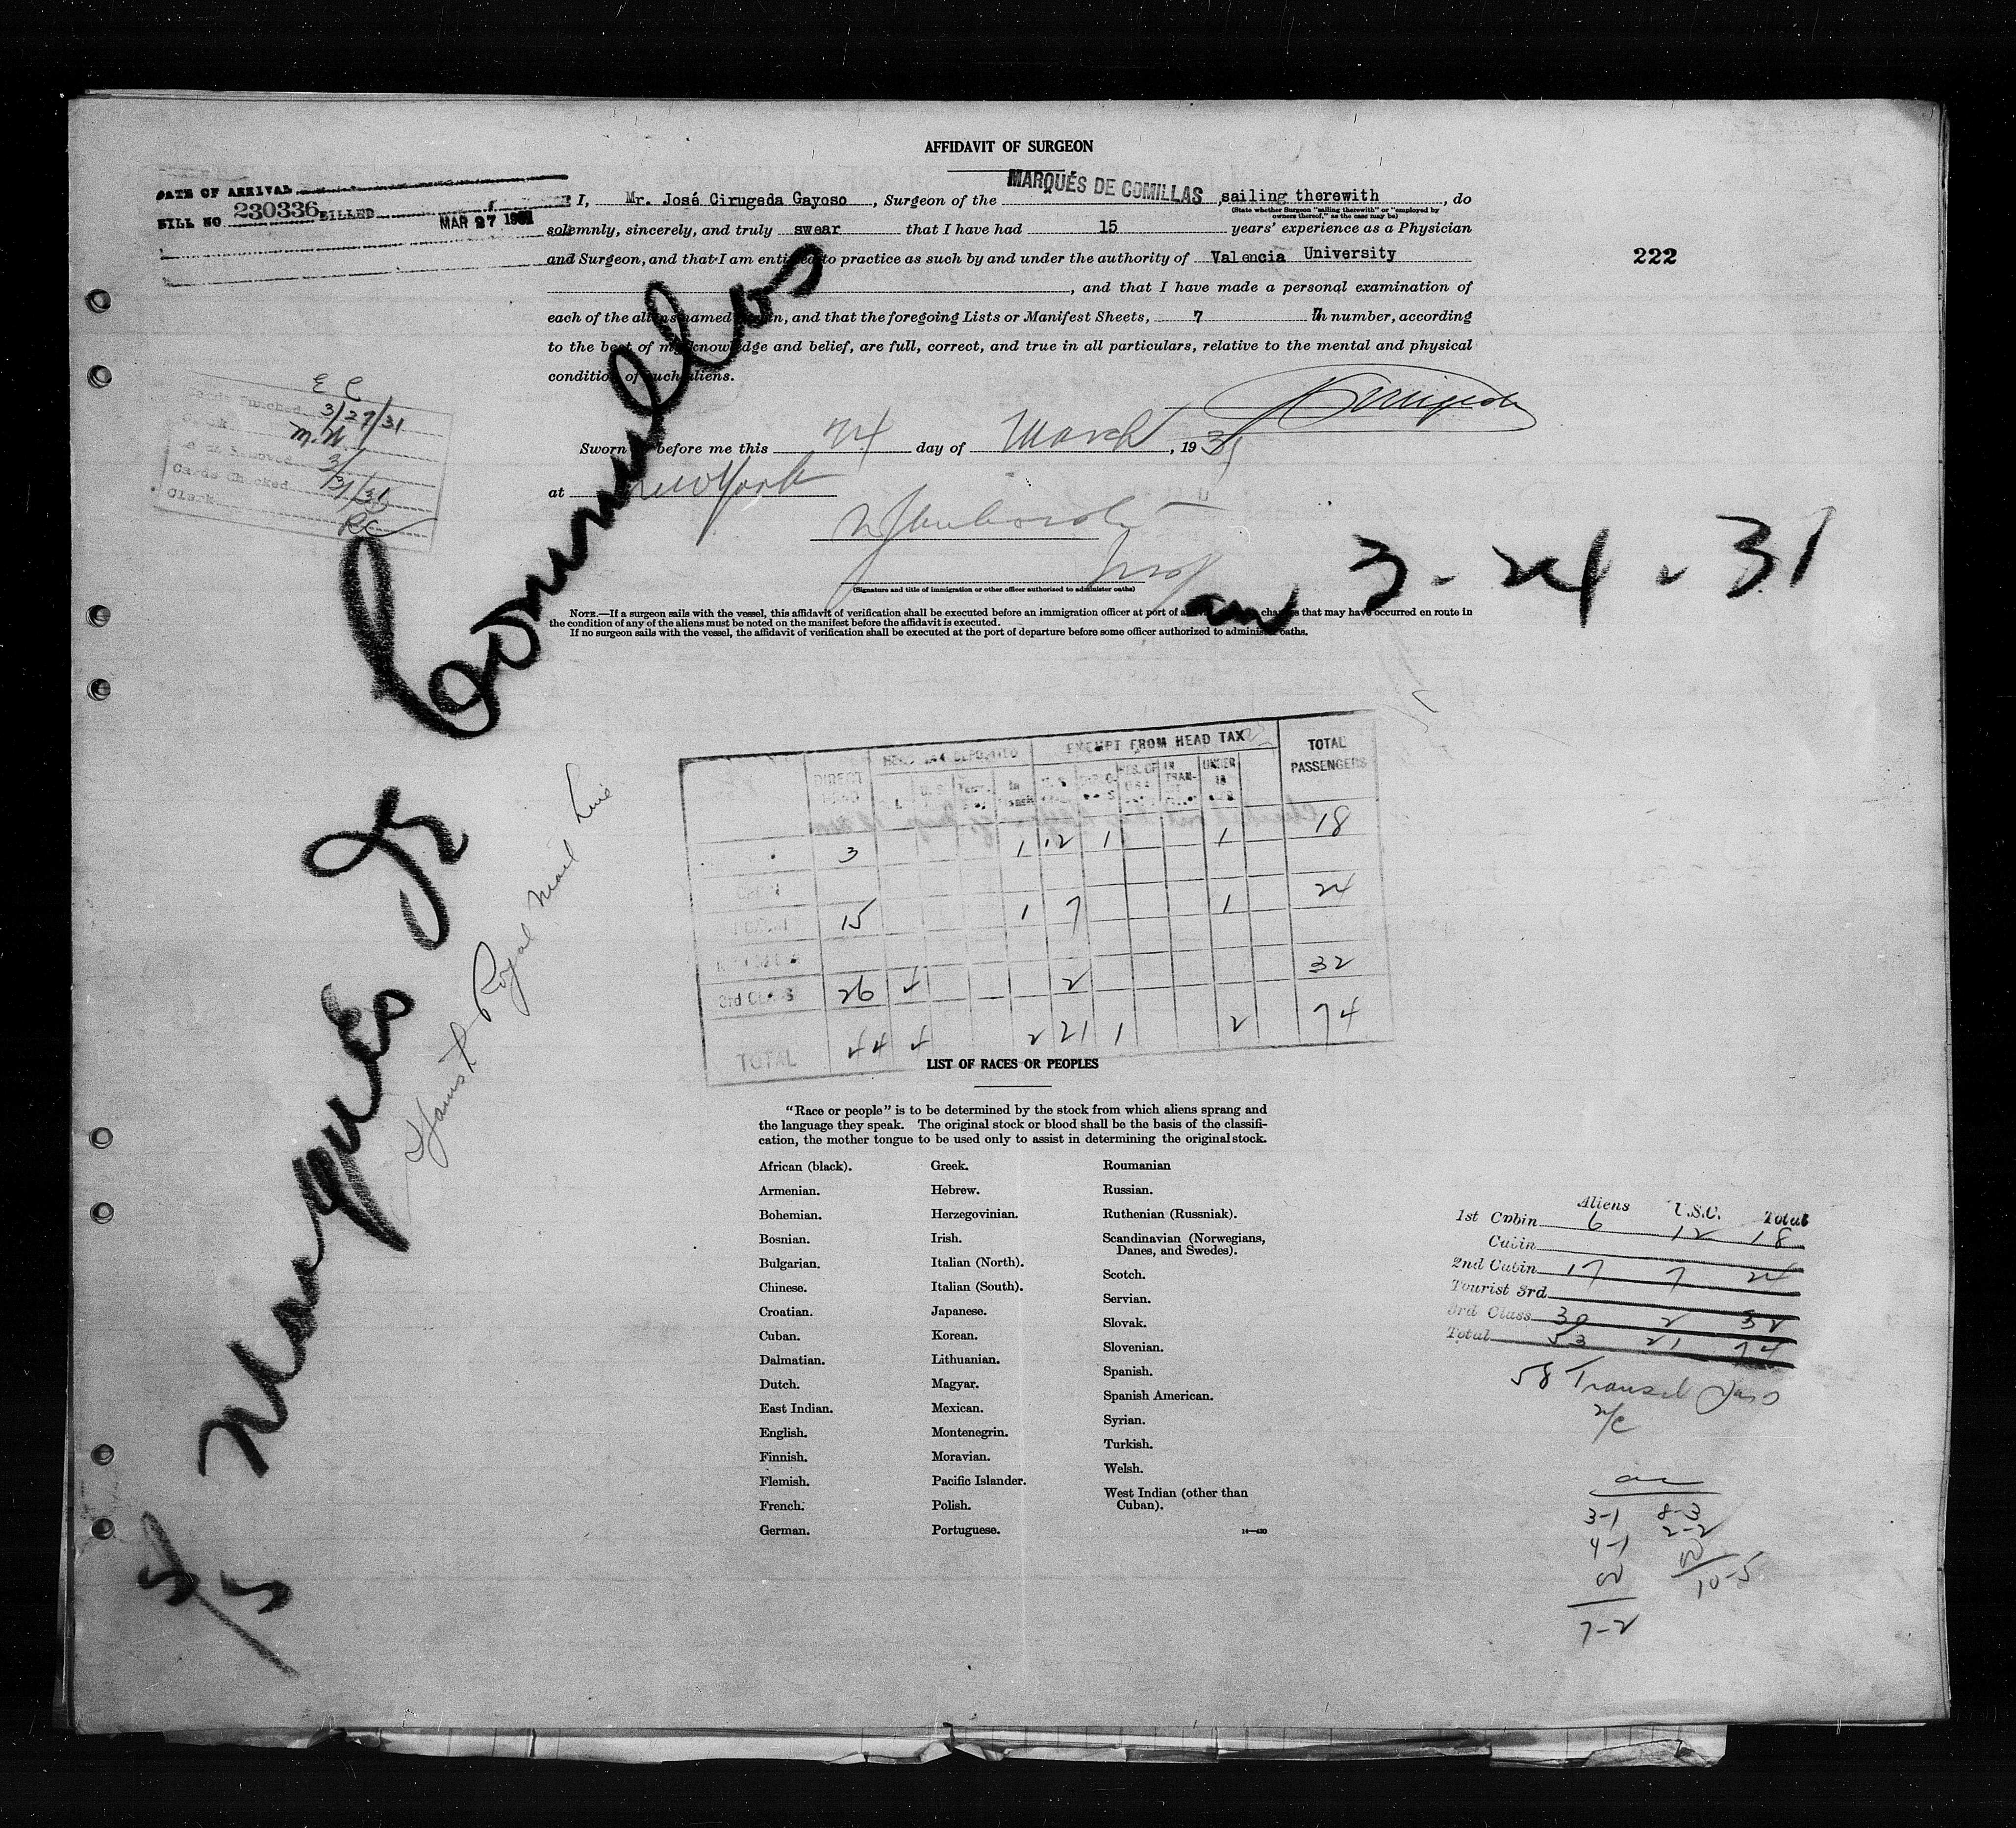 AFFIDAVIT OF SURGEON
DATE OF ARRIVAL
BILL NO 230336 BILLED MAR 27 1931
I, Mr. José Cirugeda Gayoso, Surgeon of the MARQUÉS DE COMILLAS, sailing therewith, do
(State whether Surgeon "sailing therewith" or "employed by
owners thereof," as the case may be)
solemnly, sincerely, and truly swear that I have had 15 years' experience as a Physician
and Surgeon, and that I am entitled to practice as such by and under the authority of Valencia University
222
, and that I have made a personal examination of
each of the aliens named herein, and that the foregoing Lists or Manifest Sheets, 7 in number, according
to the best of my knowledge and belief, are full, correct, and true in all particulars, relative to the mental and physical
condition of such aliens.
E C
Cards Punched 3/27/31
Clerk M.N
3/31/31
Cards Checked
Clerk RC
Sworn before me this 24 day of March, 1931
at New York
(Signature and title of immigration or other officer authorized to administer oaths)
arr 3-24-31
NOTE.—If a surgeon sails with the vessel, this affidavit of verification shall be executed before an immigration officer at port of changes that may have occurred en route in
the condition of any of the aliens must be noted on the manifest before the affidavit is executed.
If no surgeon sails with the vessel, the affidavit of verification shall be executed at the port of departure before some officer authorized to administer oaths.
S/S Marques de Comillas
Spanish Royal Mail Line
HEAD TAX DEPOSITED EXEMPT FROM HEAD TAX TOTAL PASSENGERS
DIRECT
UNDER 16
3 1 12 1 1 18
15 1 7 1 24
3rd CLASS 26 4 2 32
TOTAL 44 4 2 21 1 2 74
LIST OF RACES OR PEOPLES
"Race or people" is to be determined by the stock from which aliens sprang and
the language they speak. The original stock or blood shall be the basis of the classifi-
cation, the mother tongue to be used only to assist in determining the original stock.
African (black).
Armenian.
Bohemian.
Bosnian.
Bulgarian.
Chinese.
Croatian.
Cuban.
Dalmatian.
Dutch.
East Indian.
English.
Finnish.
Flemish.
French.
German.
Greek.
Hebrew.
Herzegovinian.
Irish.
Italian (North).
Italian (South).
Japanese.
Korean.
Lithuanian.
Magyar.
Mexican.
Montenegrin.
Moravian.
Pacific Islander.
Polish.
Portuguese.
Roumanian
Russian.
Ruthenian (Russniak).
Scandinavian (Norwegians,
Danes, and Swedes).
Scotch.
Servian.
Slovak.
Slovenian.
Spanish.
Spanish American.
Syrian.
Turkish.
Welsh.
West Indian (other than
Cuban).
14—430
Aliens U.S.C. Total
1st Cabin 6 12 18
Cabin
2nd Cabin 17 7 24
Tourist 3rd
3rd Class 30 2 32
Total 53 21 74
58 Transit Pass
3-1 8-3
4-1 2-2
10-5
7-2